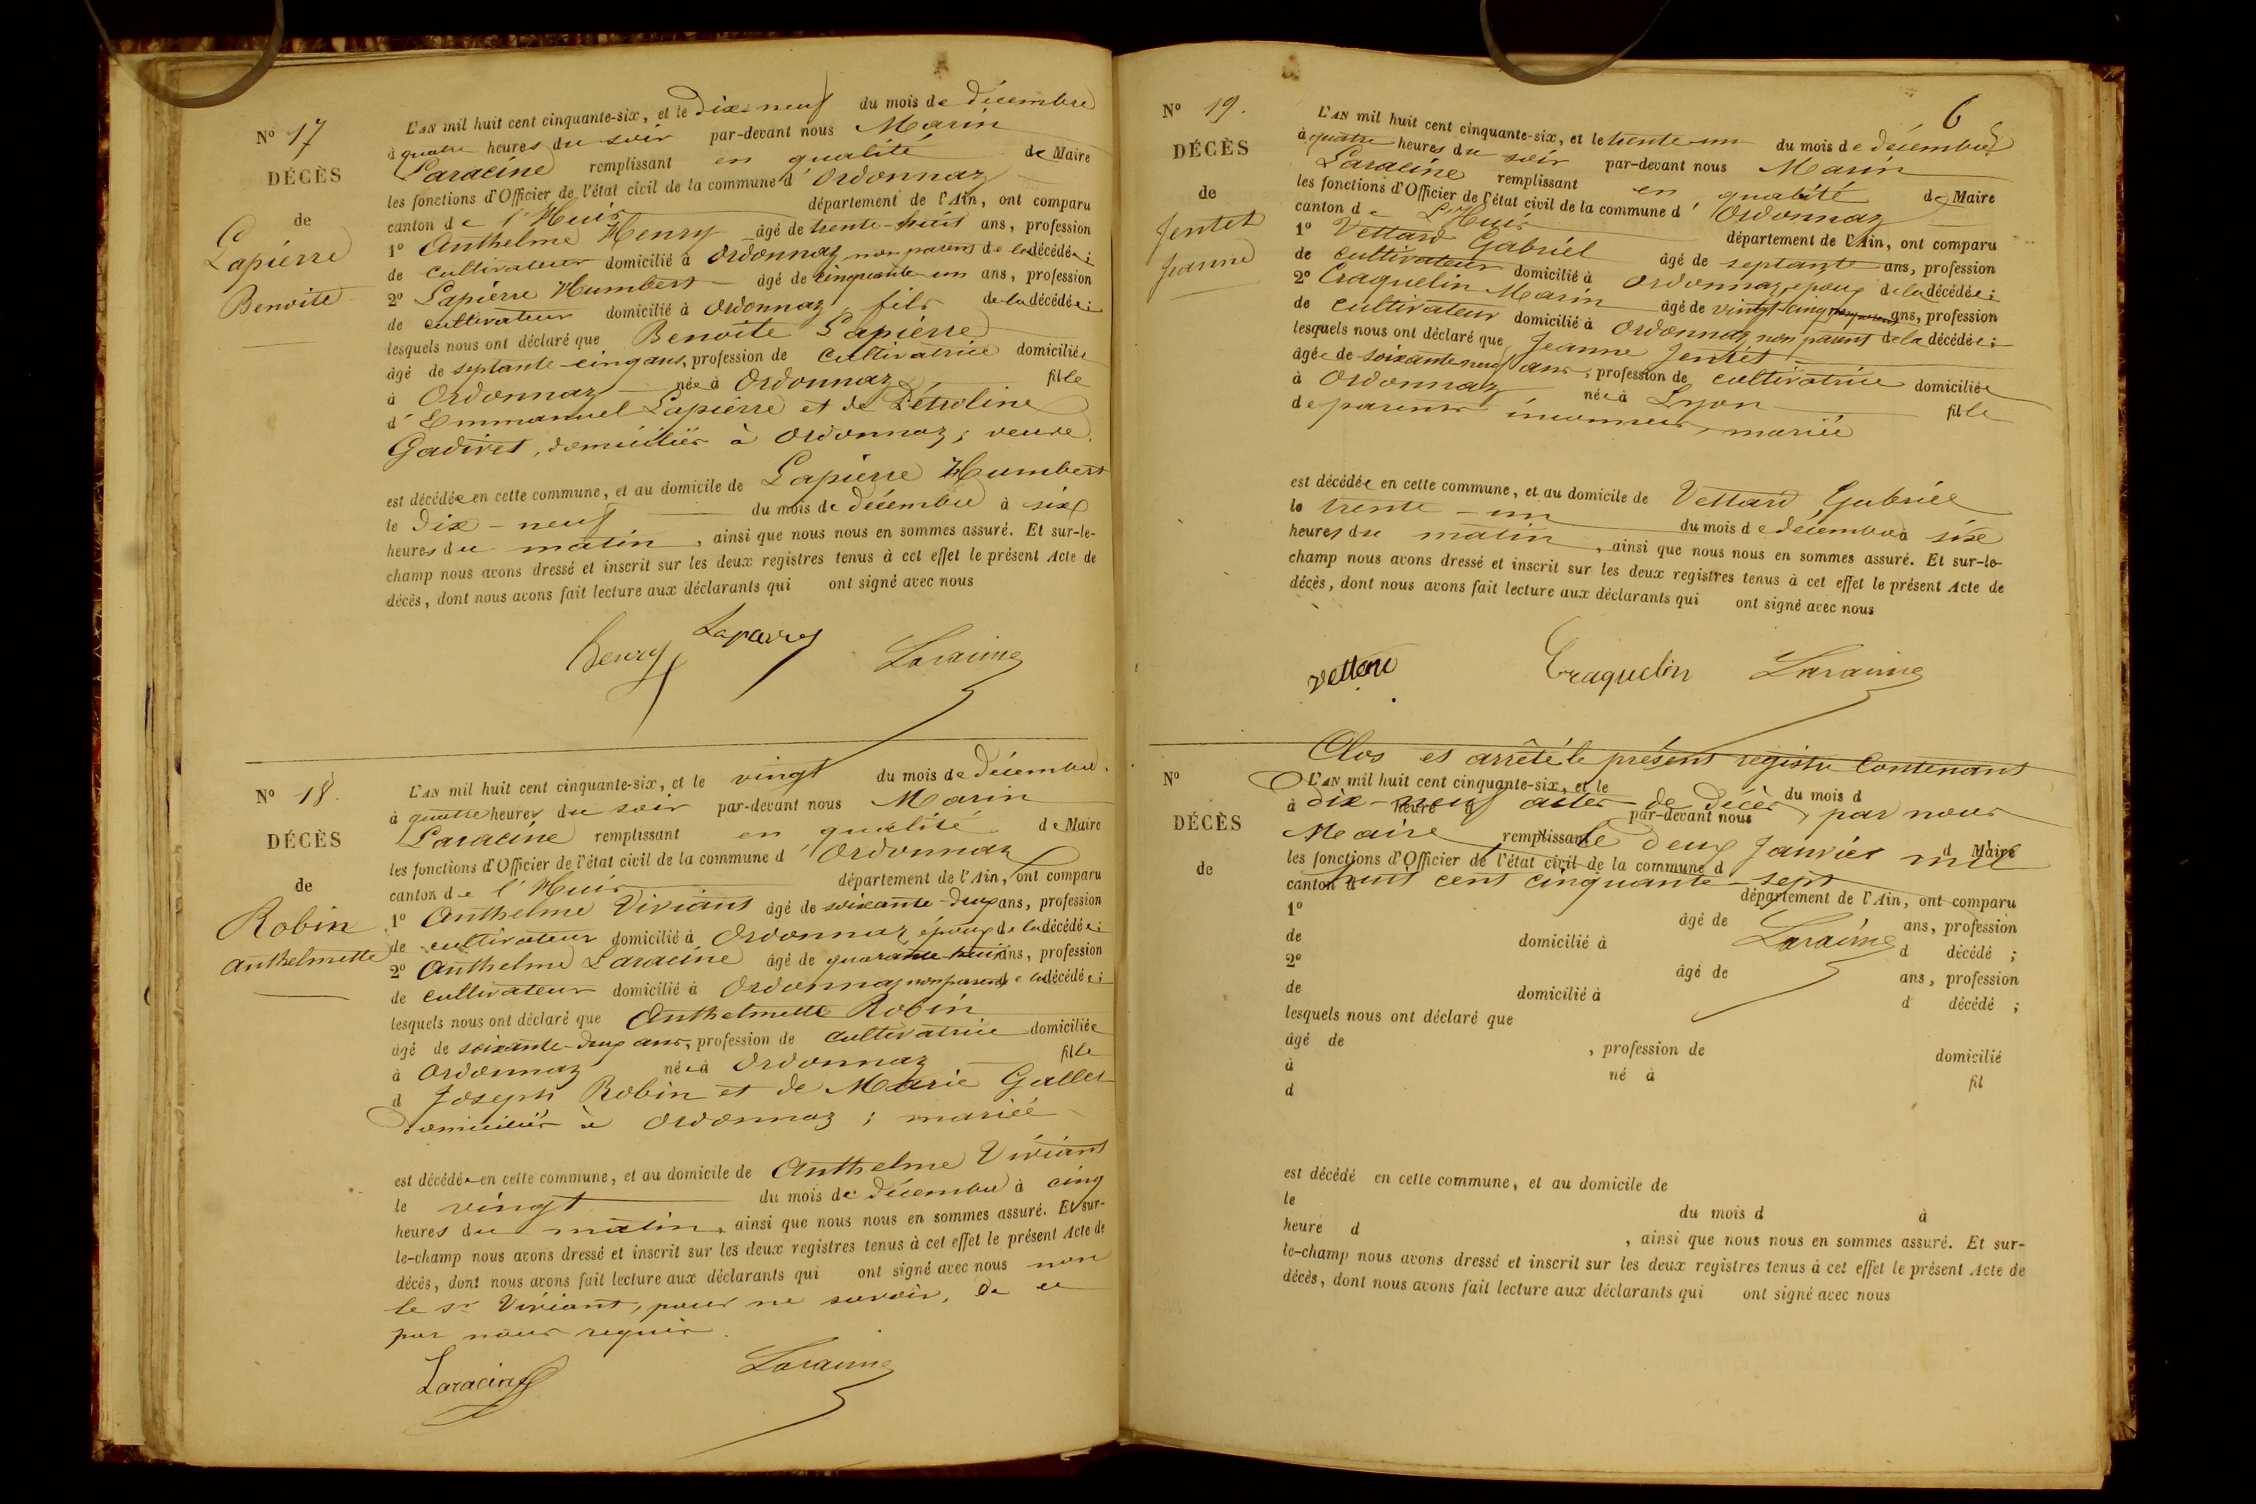 N° 17
DÉCÈS
de
Lapierre
Benoite
L'AN mil huit cent cinquante-six, et le Dix-neuf du mois de décembre
à quatre heures du soir par-devant nous Marin
Laracine remplissant en qualité de Maire
les fonctions d'Officier de l'état civil de la commune d'Ordonnaz
canton de l'Huis département de l'Ain, ont comparu
1° Anthelme Henry âgé de trente-huit ans, profession
de cultivateur domicilié à Ordonnaz non parent de la décédée;
2° Lapierre Humbert âgé de cinquante-un ans, profession
de cultivateur domicilié à Ordonnaz, fils de la décédée;
lesquels nous ont déclaré que Benoite Lapierre
âgé de septante-cinq ans, profession de cultivatrice domiciliée
à Ordonnaz née à Ordonnaz fille
d'Emmanuel Lapierre et de Pétroline
Gadivet, domiciliés à Ordonnaz; veuve.
est décédée en cette commune, et au domicile de Lapierre Humbert
le Dix-neuf du mois de décembre à six
heures du matin, ainsi que nous nous en sommes assuré. Et sur-le-
champ nous avons dressé et inscrit sur les deux registres tenus à cet effet le présent Acte de
décès, dont nous avons fait lecture aux déclarants qui ont signé avec nous
henry Lapierre Laracine
N° 18.
DÉCÈS
de
Robin
Anthelmette
L'AN mil huit cent cinquante-six, et le vingt du mois de décembre.
à quatre heures du soir par-devant nous Marin
Laracine remplissant en qualité de Maire
les fonctions d'Officier de l'état civil de la commune d'Ordonnaz
canton de l'Huis département de l'Ain, ont comparu
1° Anthelme Viviant âgé de soixante-deux ans, profession
de cultivateur domicilié à Ordonnaz, époux de la décédée;
2° Anthelme Laracine âgé de quarante-huit ans, profession
de cultivateur domicilié à Ordonnaz non parent de la décédée;
lesquels nous ont déclaré que Anthelmette Robin
âgé de soixante-deux ans, profession de cultivatrice domiciliée
à Ordonnaz née à Ordonnaz fille
d Joseph Robin et de Marie Gallet
domiciliés à Ordonnaz; mariée
est décédée en cette commune, et au domicile de Anthelme Viviant
le vingt du mois de décembre à cinq
heures du matin, ainsi que nous nous en sommes assuré. Et sur-
le-champ nous avons dressé et inscrit sur les deux registres tenus à cet effet le présent Acte de
décès, dont nous avons fait lecture aux déclarants qui ont signé avec nous non
le sr Viviant, pour ne savoir, de ce
par nous requis.
Laracine Laracine
6
N° 19.
DÉCÈS
de
Jentet
Jeanne
L'AN mil huit cent cinquante-six, et le trente-un du mois de décembre
à quatre heures du soir par-devant nous Marin
Laracine remplissant en qualité de Maire
les fonctions d'Officier de l'état civil de la commune d'Ordonnaz
canton de L'Huis département de l'Ain, ont comparu
1° Vettard Gabriel âgé de septante ans, profession
de cultivateur domicilié à Ordonnaz, époux de la décédée;
2° Craquelin Marin âgé de vingt-cinq ans, profession
de cultivateur domicilié à Ordonnaz, non parent de la décédée;
lesquels nous ont déclaré que Jeanne Jentet
âgée de soixante-neuf ans, profession de cultivatrice domiciliée
à Ordonnaz née à Lyon fille
de parents inconnus, mariée
est décédée en cette commune, et au domicile de Vettard Gabriel
le trente-un du mois de décembre à six
heures du matin, ainsi que nous nous en sommes assuré. Et sur-le-
champ nous avons dressé et inscrit sur les deux registres tenus à cet effet le présent Acte de
décès, dont nous avons fait lecture aux déclarants qui ont signé avec nous
Craquelin Laracine
Clos et arrêté le présent registre Contenant
N°
L'AN mil huit cent cinquante-six, et le du mois d
dix-neuf actes de Décès, par nous
à heure d par-devant nous
DÉCÈS
Maire le deux Janvier mil
remplissant d Maire
les fonctions d'Officier de l'état civil de la commune d
de
huit cent cinquante-sept
canton d département de l'Ain, ont comparu
1° âgé de ans, profession
Laracine
de domicilié à d décédé ;
2° âgé de ans, profession
de domicilié à d décédé ;
lesquels nous ont déclaré que
âgé de , profession de domicilié
à né à fil
d
est décédé en cette commune, et au domicile de
le du mois d à
heure d , ainsi que nous nous en sommes assuré. Et sur-
le-champ nous avons dressé et inscrit sur les deux registres tenus à cet effet le présent Acte de
décès, dont nous avons fait lecture aux déclarants qui ont signé avec nous